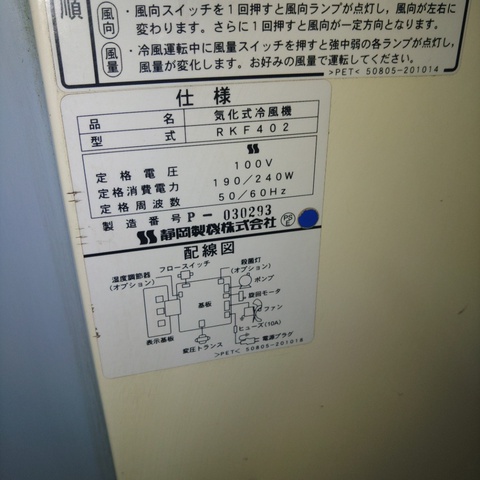 順
風向 ・風向スイッチを1回押すと風向ランプが点灯し、風向が左右に
変わります。さらに1回押すと風向が一定方向となります。
風量 ・冷風運転中に風量スイッチを押すと強中弱の各ランプが点灯し、
風量が変化します。お好みの風量で運転してください。
>PET< 50805-201014
仕様
品名 気化式冷風機
型式 RKF402
定格電圧 100V
定格消費電力 190/240W
定格周波数 50/60Hz
製造番号 P-030293
静岡製機株式会社 PSE
配線図
フロースイッチ
殺菌灯
(オプション)
湿度調節器
(オプション)
ポンプ
基板
旋回モータ
ファン
ヒューズ(10A)
表示基板
変圧トランス
電源プラグ
>PET< 50805-201014